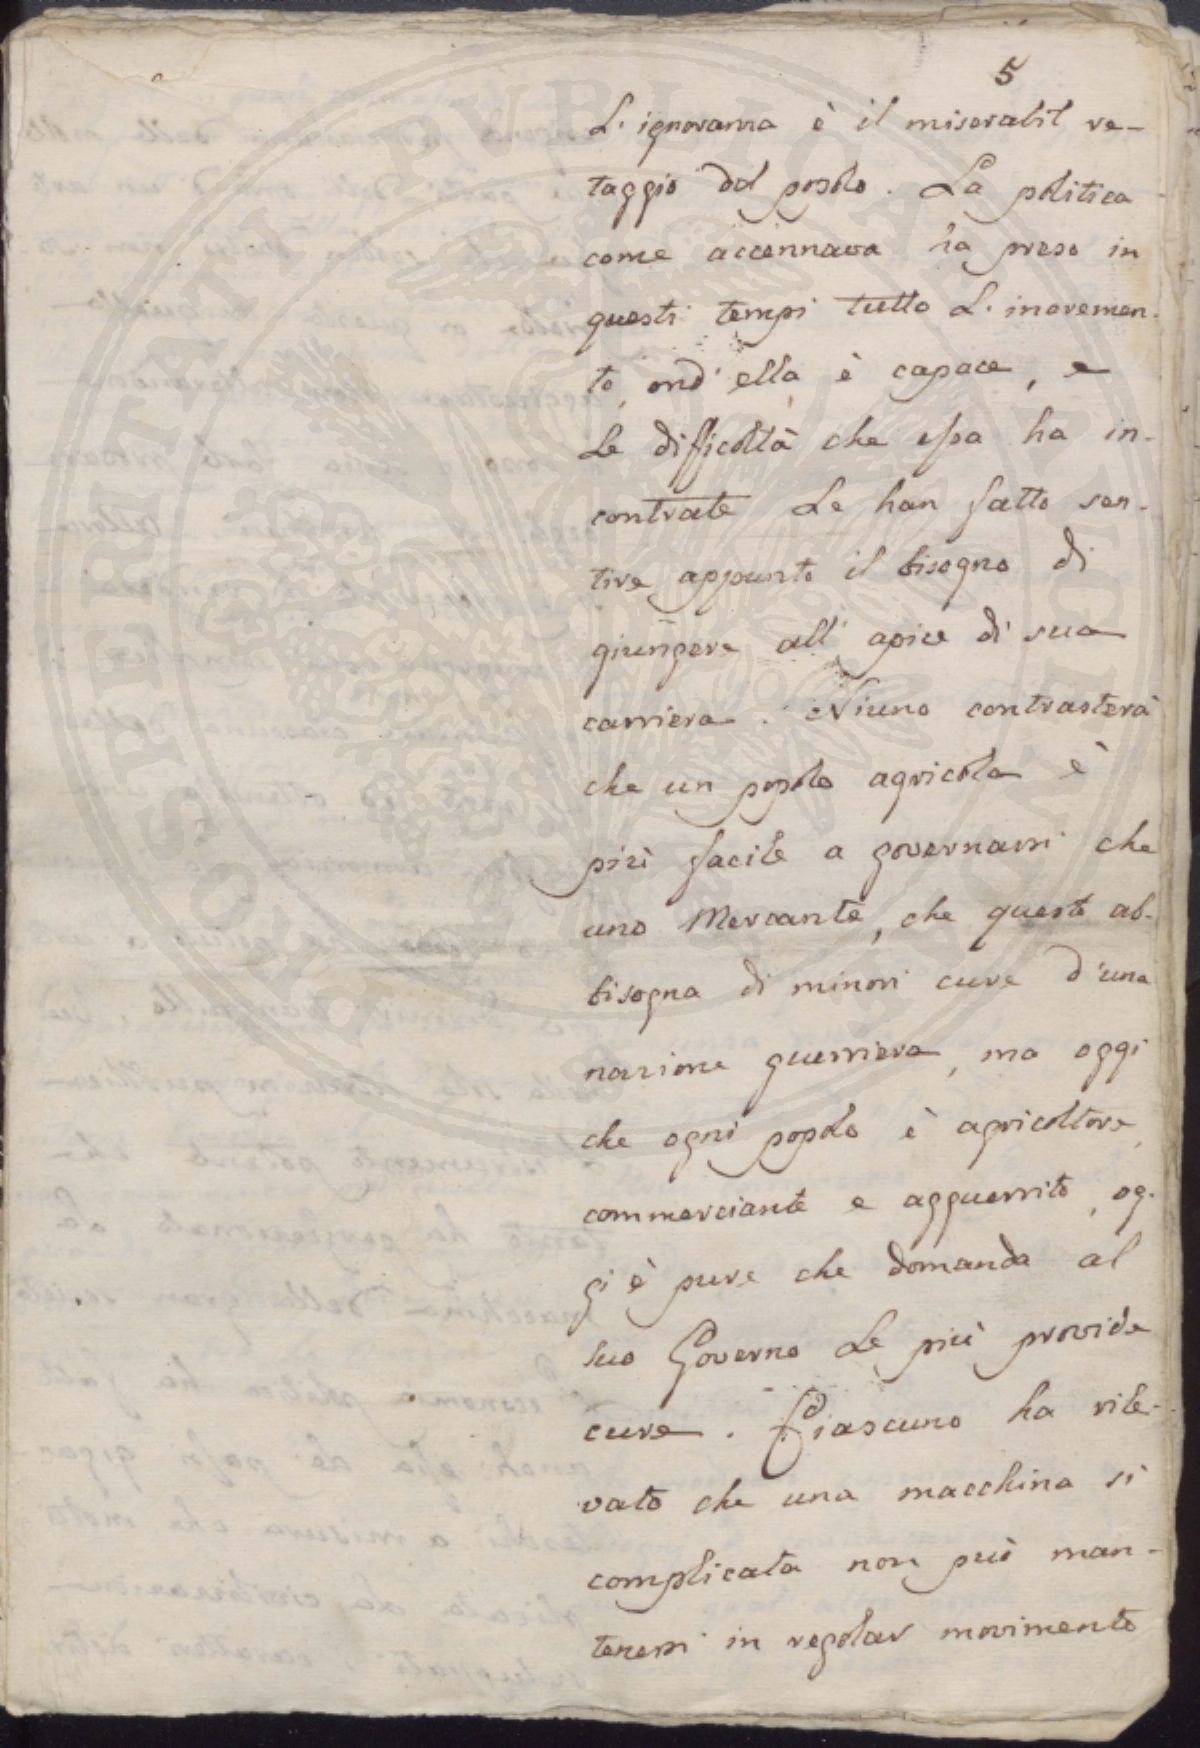 5
L'ignoranza è il miserabil re-
taggio del popolo. La politica
come accennava ha preso in
questi tempi tutto l'incremen-
to, ond'ella è capace, e
le difficoltà che essa ha in-
contrate le han fatto sen-
tire appunto il bisogno di
giungere all'apice di sua
carriera. Niuno contrasterà
che un popolo agricola è
più facile a governarsi che
uno Mercante, che questo ab-
bisogna di minori cure d'una
nazione guerriera, ma oggi
che ogni popolo è agricoltore,
commerciante e agguerrito, og-
gi è pure che domanda al
suo Governo le più provide
cure. Ciascuno ha rile-
vato che una macchina sì
complicata non può man-
tenersi in regolar movimento
PROSPERITATI PVBLICAE AVGENDAE